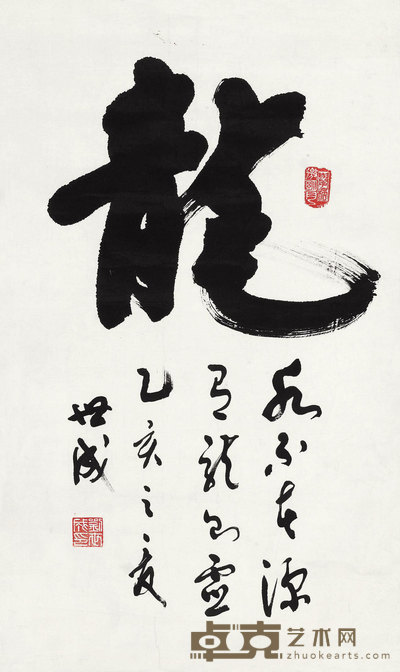 龍
水不在深
有龍則靈
乙亥之夏
世成
卓克艺术网
zhuokearts.com